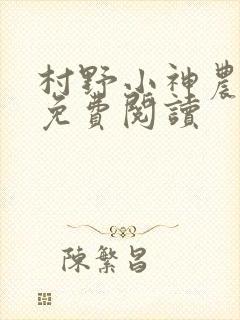 村野小神農
免費閱讀
陳繁昌